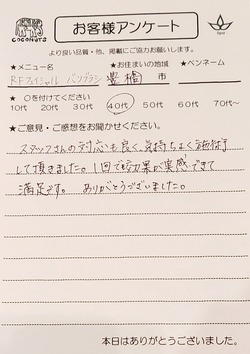 COCONUTS
お客様アンケート
より良い品質・他、掲載にご協力お願いします。
★メニュー名 ★お住まいの地域 ★ペンネーム
RFフェイシャル ハンブラシ 豊橋 市
★ ○を付けてください
10代 20代 30代 40代 50代 60代 70代～
★ご意見・ご感想をお聞かせください。
スタッフさんの対応も良く、気持ちよく施術
して頂きました。1回で効果が実感できて
満足です。 ありがとうございました。
本日はありがとうございました。